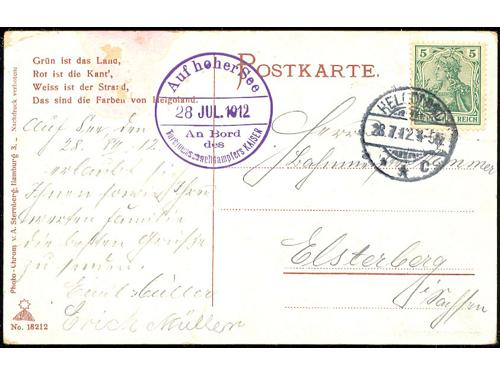 Grün ist das Land,
Rot ist die Kant',
Weiss ist der Strand,
Das sind die Farben von Helgoland.
Auf hoher See
28 JUL. 1912
An Bord
des
KAISER
POSTKARTE.
5 5
REICH
28.7.12
* * C
Auf See den
28. VII. 12
erlauben
Ihnen sowie Ihrer
werten Familie
die besten Grüsse
zu senden.
Emil Müller
Erich Müller
Herrn
Elsterberg
i/Sachsen
Photo-Chrom v. A. Sternberg, Hamburg 3., Nachdruck verboten!
No. 18212